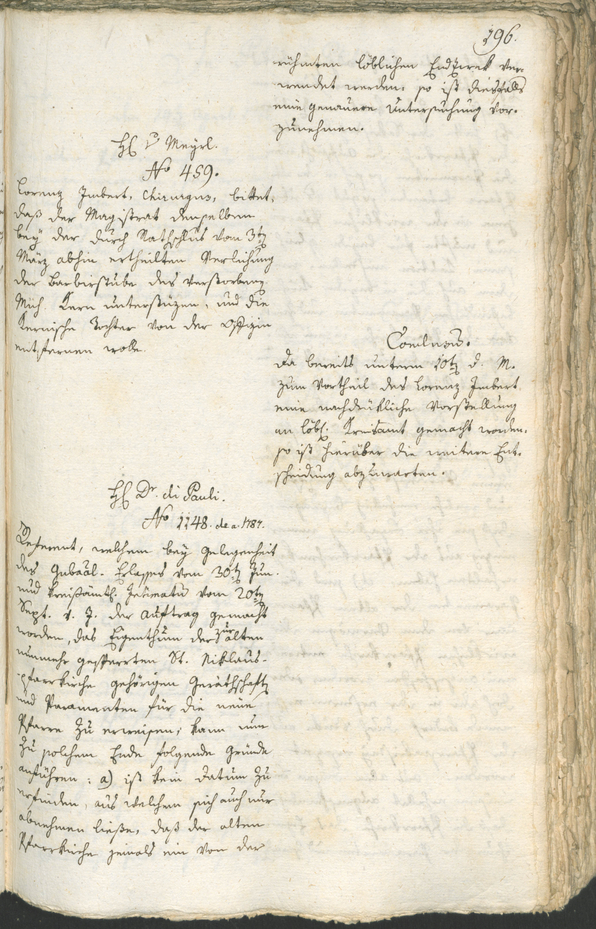 196.
rühmten löblichen Endzweck ver-
wendet werden, so ist diesfalls
eine genauere Untersuchung vor-
zunehmen.
H. Meyrl.
No 459.
Lorenz Imbert, Chirurgus, bittet,
daß der Magistrat denselben
bey der durch Rathsschluß vom 3ten
März abhin ertheilten Verleihung
der Barbierstube des verstorbenen
Mich. Kern unterstützen, und die
Kernische Tochter von der Offizin
entfernen wolle.
Conclusum.
Da bereits unterm 10ten d. M.
zum Vortheil des Lorenz Imbert
eine nachdrückliche Vorstellung
an löbl. Kreisamt gemacht worden,
so ist hierüber die weitere Ent-
scheidung abzuwarten.
H. Dr. di Pauli.
No 1148. de a. 1787.
Referent, welchem bey Gelegenheit
des Gubernial-Erlasses vom 30ten Jun.
und kreisämtl. Intimation vom 20ten
Sept. v. J. der Auftrag gemacht
worden, das Eigenthum der zur alten
nunmehr gesperrten St. Niklaus-
pfarrkirche gehörigen Geräthschaften
und Paramenten für die neue
Pfarre zu erweisen; kann nun
zu solchem Ende folgende Gründe
anführen: a) ist kein Datum zu
erfinden, aus welchem sich auch nur
abnehmen ließe, daß der alten
Pfarrkirche jemals ein von der